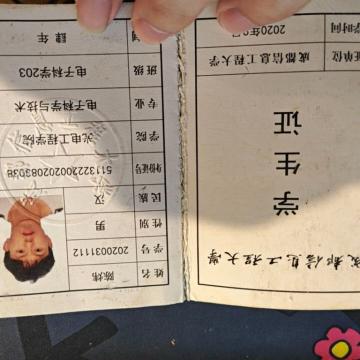 成都信息工程大学
学生证
证单位 成都信息工程大学
学时间 2020年9月
姓名 陈炜
学号 2020031112
性别 男
民族 汉
身份证号 511322200208203038
学院 光电工程学院
专业 电子科学与技术
班级 电子科学203
制 肆年